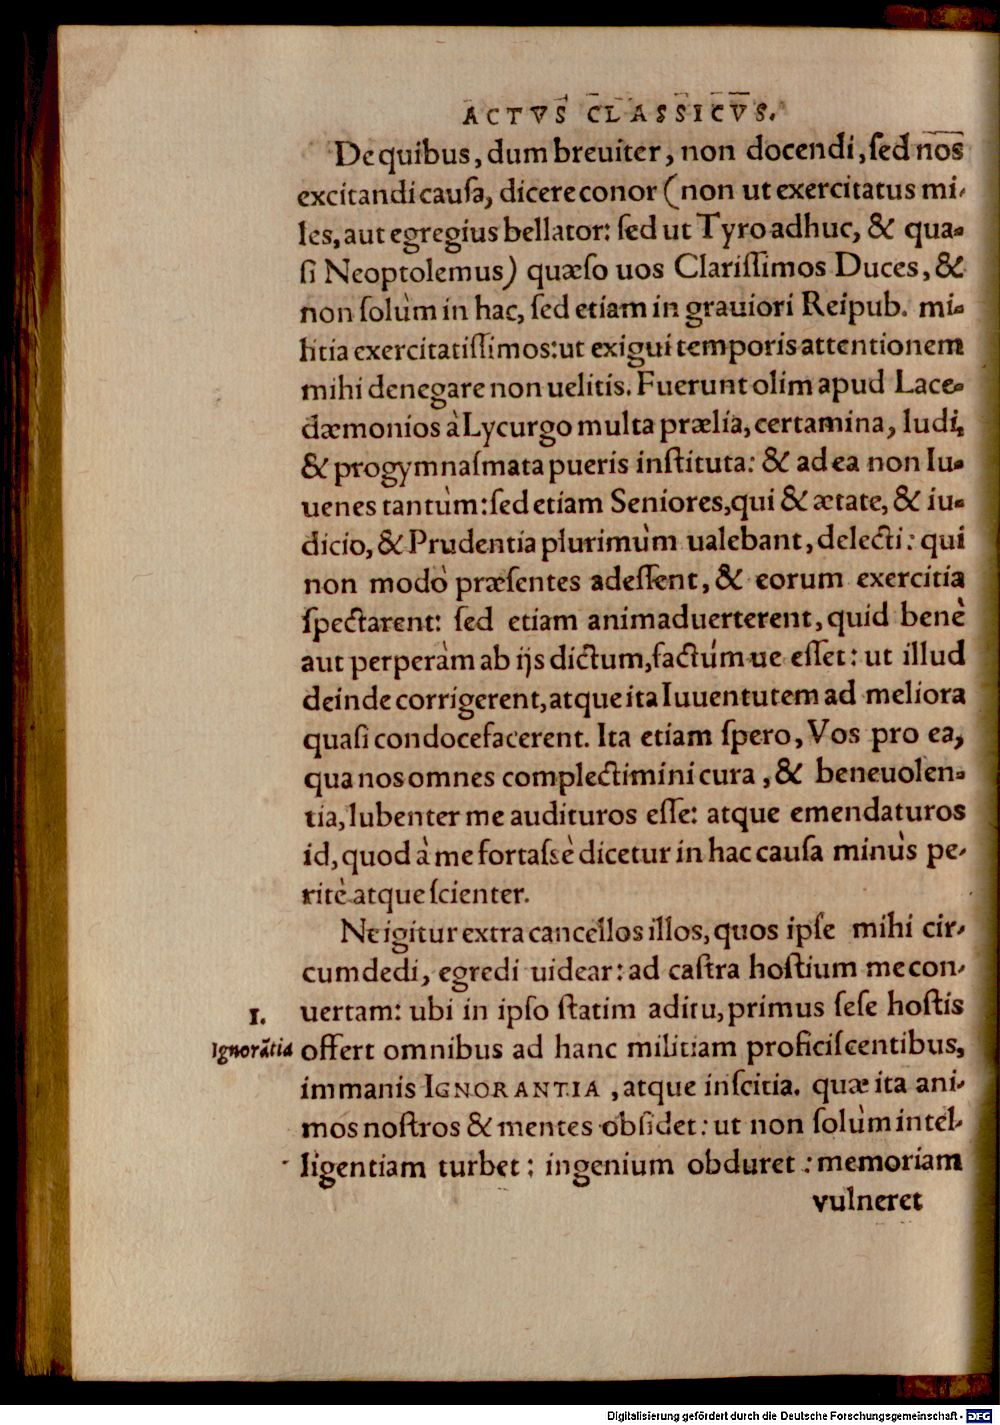 ACTVS CLASSICVS.
De quibus, dum breuiter, non docendi, ſed nos
excitandi cauſa, dicere conor (non ut exercitatus mi-
les, aut egregius bellator: ſed ut Tyro adhuc, & qua-
ſi Neoptolemus) quæſo uos Clariſſimos Duces, &
non ſolùm in hac, ſed etiam in grauiori Reipub. mi-
litia exercitatiſſimos: ut exigui temporis attentionem
mihi denegare non uelitis. Fuerunt olim apud Lace-
dæmonios à Lycurgo multa prælia, certamina, ludi,
& progymnaſmata pueris inſtituta: & ad ea non Iu-
uenes tantùm: ſed etiam Seniores, qui & ætate, & iu-
dicio, & Prudentia plurimùm ualebant, delecti: qui
non modò præſentes adeſſent, & eorum exercitia
ſpectarent: ſed etiam animaduerterent, quid benè
aut perperàm ab ijs dictum, factúm ue eſſet: ut illud
deinde corrigerent, atque ita Iuuentutem ad meliora
quaſi condocefacerent. Ita etiam ſpero, Vos pro ea,
qua nos omnes complectimini cura, & beneuolen-
tia, lubenter me audituros eſſe: atque emendaturos
id, quod à me fortaſsè dicetur in hac cauſa minùs pe-
ritè atque ſcienter.
Ne igitur extra cancellos illos, quos ipſe mihi cir-
cumdedi, egredi uidear: ad caſtra hoſtium me con-
1. uertam: ubi in ipſo ſtatim aditu, primus ſeſe hoſtis
Ignorãtia offert omnibus ad hanc militiam proficiſcentibus,
immanis IGNORANTIA, atque inſcitia. quæ ita ani-
mos noſtros & mentes obſidet: ut non ſolùm intel-
ligentiam turbet: ingenium obduret: memoriam
vulneret
Digitalisierung gefördert durch die Deutsche Forschungsgemeinschaft - DFG